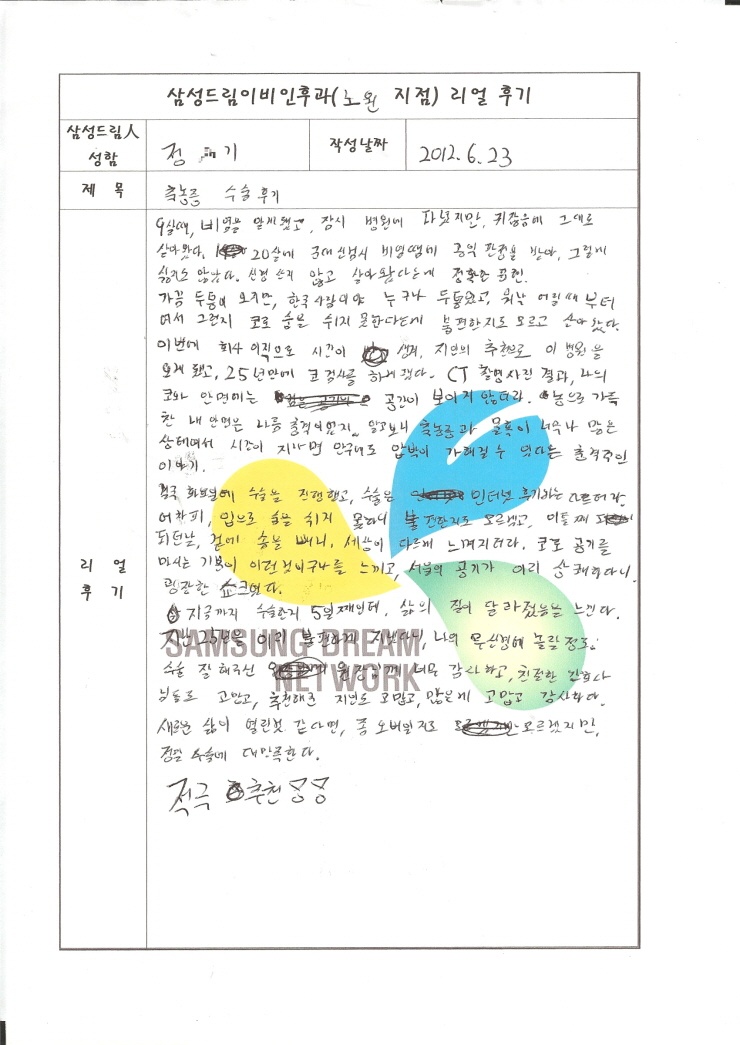 삼성드림이비인후과(노원 지점) 리얼 후기
삼성드림人
성함
정 기
작성날짜
2012. 6. 23
제 목
축농증 수술 후기
9살때, 비염을 알게됐고, 잠시 병원에 다녔지만, 귀찮음에 그대로
살아왔다. 20살에 국대신검시 비염땜에 공익 판정을 받아, 그렇게
싫지도 않았다. 신경 쓰지 않고 살아왔다는게 정확한 표현.
가끔 두통이 오지만, 한국사람이야 누구나 두통있고, 워낙 어릴때부터
여서 그런지 코로 숨을 쉬지 못한다는데 불편한지도 모르고 살아 왔다.
이번에 회사 이직으로 시간이 생겨, 지인의 추천으로 이 병원을
오게 됐고, 25년만에 코 검사를 하게 됐다. CT 촬영사진 결과, 나의
코와 안면에는 공간이 보이지 않더라. 농으로 가득
찬 내 안면은 나름 충격이었지.. 알고보니 축농증과 물혹이 너무나 많은
상태여서 시간이 지나면 안구에도 압박이 가해질 수 있다는 충격적인
이야기.
수술을 진행했고, 수술은 인터넷 후기와는
어차피, 입으로 숨을 쉬지 못하니 불편한지도 모르겠고, 이틀 째
되던날, 겉에 솜을 빼니, 세상이 다르게 느껴지더라. 코로 공기를
마시는 기분이 이런것이구나를 느끼고, 서울의 공기가 이리 상쾌하다니,
굉장한 쇼크였다.
지금까지 수술한지 5일째인데, 삶의 질이 달라졌음을 느낀다.
지난 25년을 이리 불편하게 지냈다니, 나의 무신경에 놀랄 정도.
수술 잘 해주신 원장님께 너무 감사하고, 친절한 간호사
님들도 고맙고, 추천해준 지인도 고맙고, 많은게 고맙고 감사하다.
새로운 삶이 열린것 같다면, 좀 오버일지도 모르겠지만,
정말 수술에 대만족한다.
적극 추천
리 얼
후 기
SAMSUNG DREAM
NETWORK